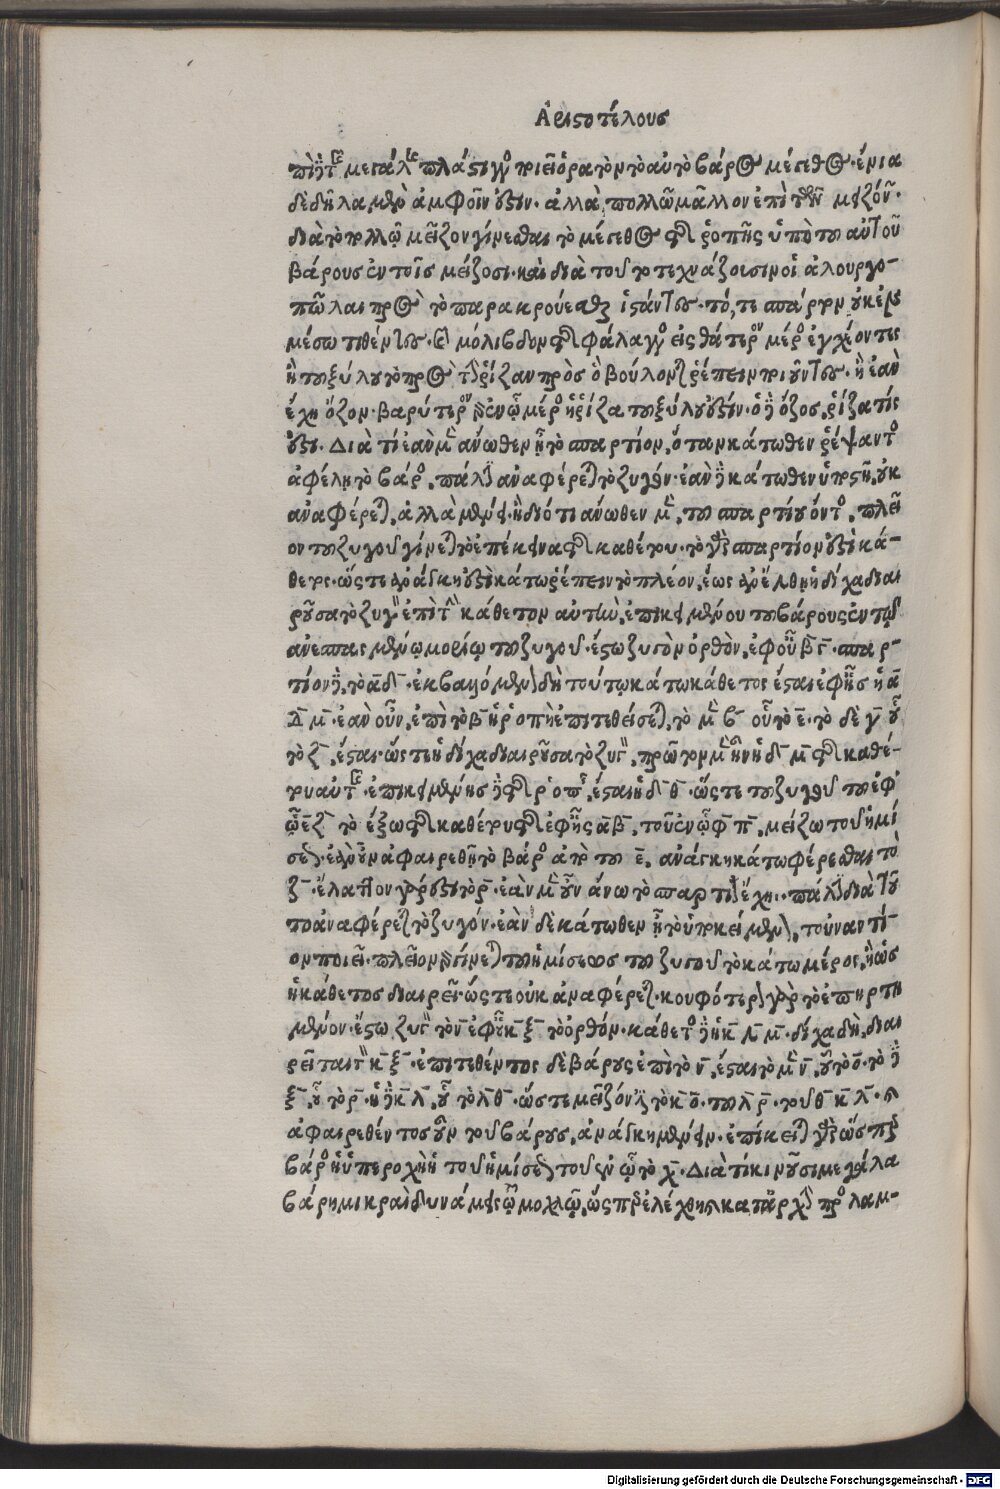 Ἀριστοτέλους
ἐπὶ δὲ τῆς μεγάλης πλάστιγγος ποιεῖ ὁρατὸν τὸ αὐτὸ βάρος μέγεθος. ἔνια
δὲ δῆλα μὲν ἀμφοῖν ἐστιν. ἀλλὰ πολλῷ μᾶλλον ἐπὶ τῶν μειζόνων.
διὰ τὸ πολλῷ μεῖζον γίνεσθαι τὸ μέγεθος τῆς ῥοπῆς ὑπὸ τοῦ αὐτοῦ
βάρους ἐν τοῖς μείζοσι. καὶ διὰ τοῦτο τεχνάζουσιν οἱ ἁλουργο-
πῶλαι πρὸς τὸ παρακρούεσθαι ἱστάντες. τό, τε σπάρτον οὐκ ἐν
μέσω τιθέντες. καὶ μόλιβδον τῆς φάλαγγος εἰς θάτερον μέρος ἐγχέοντες
ἢ τοῦ ξύλου τὸ πρὸς τὴν ῥίζαν πρὸς ὃ βούλονται ῥέπειν ποιοῦντες. ἢ ἐὰν
ἔχη ὄζον. βαρύτερον γὰρ ἐν ᾧ μέρος ἡ ῥίζα τοῦ ξύλου ἐστίν. ὁ δὲ ὄζος, ῥίζα τίς
ἐστι. Διὰ τί ἐὰν μὲν ἄνωθεν ᾖ τὸ σπαρτίον, ὅταν κάτωθεν ῥέψαντος
ἀφέλῃ τὸ βάρος, πάλιν ἀναφέρεται τὸ ζυγόν. ἐὰν δὲ κάτωθεν ὑποστῇ, οὐκ
ἀναφέρεται, ἀλλὰ μένει. ἢ διότι ἄνωθεν μὲν, τοῦ σπαρτίου ὄντος, πλεῖ
ον τοῦ ζυγοῦ γίνεται τὸ ἐπέκεινα τῆς καθέτου. τὸ γὰρ σπαρτίον ἐστὶ κά-
θετος. ὥστε ἀνάγκη ἐστὶ κάτω ῥέπειν τὸ πλέον, ἕως ἂν ἔλθῃ ἡ δίχα διαι
ροῦσα τὸ ζυγὸν ἐπὶ τὴν κάθετον αὐτήν, ἐπικειμένου τοῦ βάρους ἐν τῷ
ἀνεσπασμένῳ μορίῳ τοῦ ζυγοῦ. ἔστω ζυγὸν ὀρθόν, ἐφ' οὗ β̄γ̄. σπαρ-
τίον δὲ, τὸ ᾱδ̄. ἐκβαλλόμενον δὴ τούτῳ κάτω κάθετος ἔσται ἐφ' ἧς ἡ ᾱ
δ̄ μ̄. ἐὰν οὖν, ἐπὶ τὸ β̄ ἡ ῥοπὴ ἐπιτεθείσεται, τὸ μὲν β̄ οὗ τὸ ε̄. τὸ δὲ γ̄ οὗ
τὸ ζ̄, ἔσται. ὥστε ἡ δίχα διαιροῦσα τὸ ζυγὸν, πρῶτον μὲν ἦν ἡ δ̄ μ̄ τῆς καθέ-
του αὐτῆς. ἐπικειμένης δὲ τῆς ῥοπῆς, ἔσται ἡ δ̄ θ̄. ὥστε τοῦ ζυγοῦ τοῦ ἐφ'
ᾧ ε̄ ζ̄ τὸ ἔξω τῆς καθέτου τῆς ἐφ' ἧς ᾱ β̄, τοῦ ἐν ᾧ φ̄ π̄, μείζω τοῦ ἡμί
σεος. ἐὰν οὖν ἀφαιρεθῇ τὸ βάρος ἀπὸ τοῦ ε̄, ἀνάγκη κάτω φέρεσθαι τὸ
ζ̄. ἔλαττον γάρ ἐστι τὸ ρ̄. ἐὰν μὲν οὖν ἄνω τὸ σπαρτίον ἔχῃ. πάλιν διὰ τοῦ
το ἀναφέρεται τὸ ζυγόν. ἐὰν δὲ κάτωθεν ᾖ τὸ ὑποκείμενον, τοὐναντί-
ον ποιεῖ. πλεῖον γὰρ γίνεται τοῦ ἡμίσεως τοῦ ζυγοῦ τὸ κάτω μέρος, ἢ ὡς
ἡ κάθετος διαιρεῖ. ὥστε οὐκ ἀναφέρεται. κουφότερον γὰρ τὸ ἐπηρτη
μένον. ἔστω ζυγὸν τὸ ἐφ' οὗ ν̄ ξ̄ τὸ ὀρθόν. κάθετος δὲ ἡ κ̄ λ̄ μ̄. δίχα δὴ, διαι
ρεῖται τὸ ν̄ ξ̄. ἐπιτεθέντος δὲ βάρους ἐπὶ τὸ ν̄, ἔσται τὸ μὲν ν̄, οὗ τὸ ο̄. τὸ δὲ
ξ̄, οὗ τὸ ρ̄. ἡ δὲ κ̄ λ̄, οὗ τὸ λ̄ θ̄. ὥστε μεῖζόν ἐστι τὸ κ̄ ο̄. τοῦ λ̄ ρ̄. τοῦ θ̄ κ̄ λ̄. καὶ
ἀφαιρεθέντος οὖν τοῦ βάρους, ἀνάγκη μένειν. ἐπίκειται γὰρ ὥσπερ
βάρος ἡ ὑπεροχὴ ἡ τοῦ ἡμίσεος τοῦ ἐν ᾧ τὸ χ̄. Διὰ τί κινοῦσι μεγάλα
βάρη μικραὶ δυνάμεις τῷ μοχλῷ, ὥσπερ ἐλέχθη καὶ κατ' ἀρχήν προσλαμ-
Digitalisierung gefördert durch die Deutsche Forschungsgemeinschaft - DFG